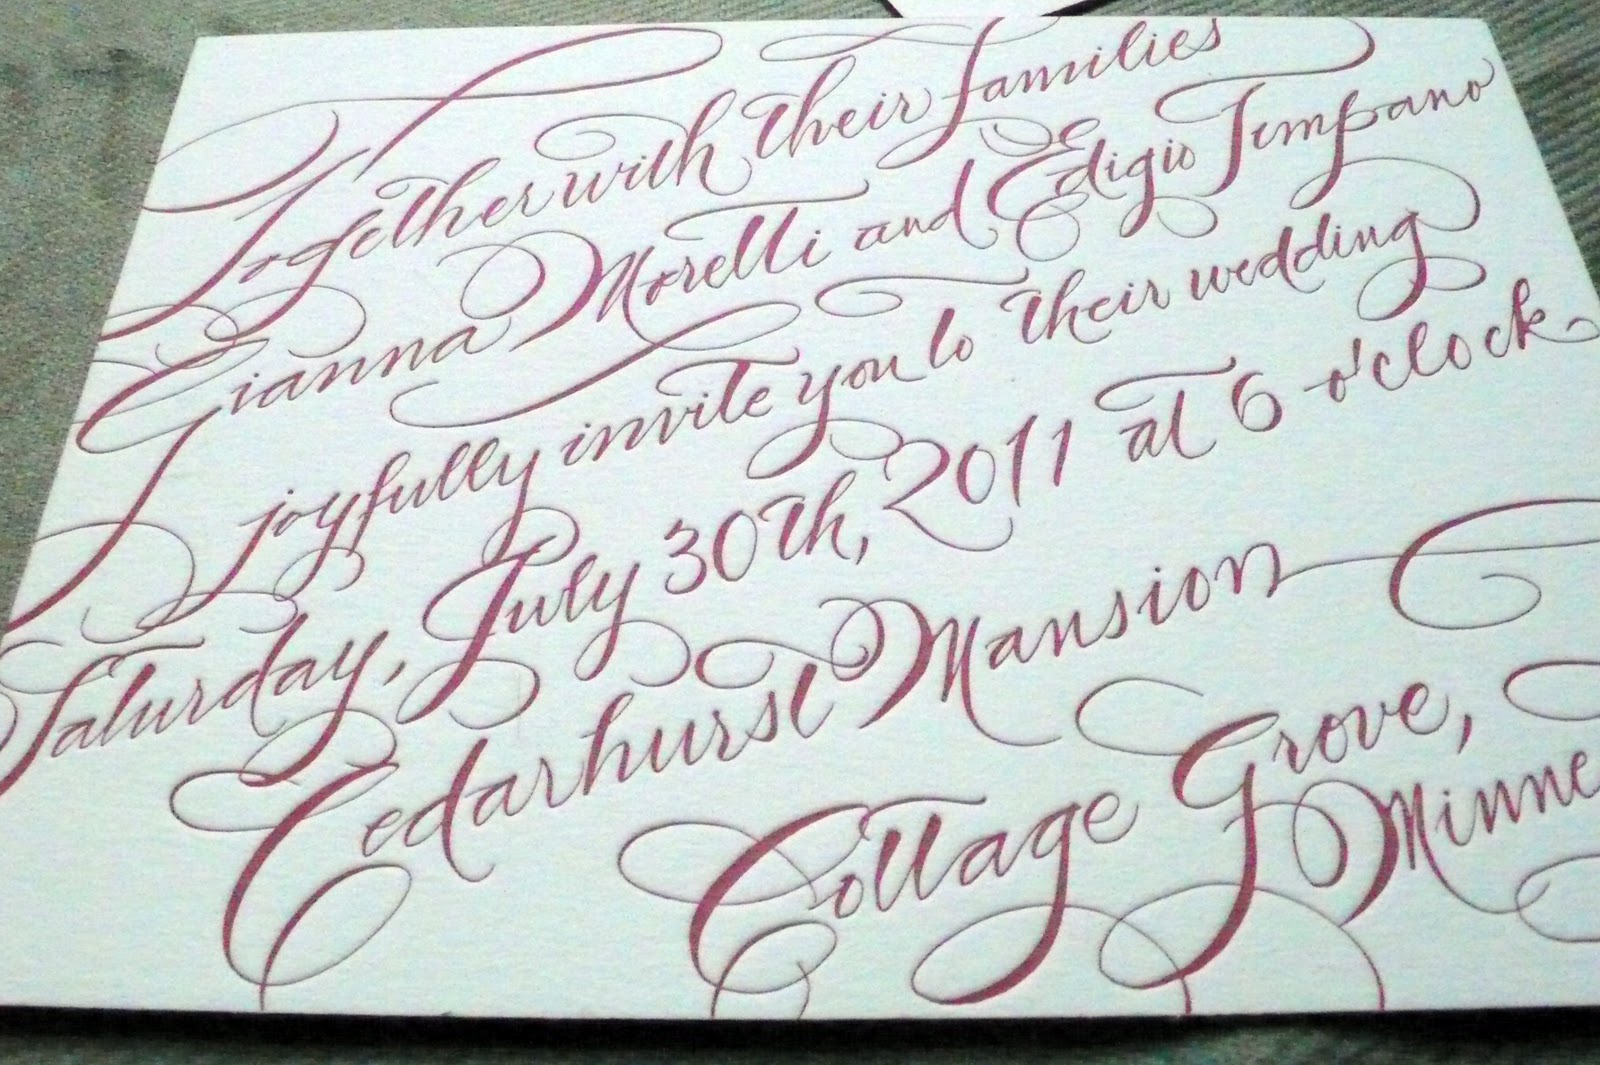 Together with their families
Gianna Morelli and Edigio Tempano
joyfully invite you to their wedding
Saturday, July 30th, 2011 at 6 o'clock
Cedarhurst Mansion
Cottage Grove, Minne